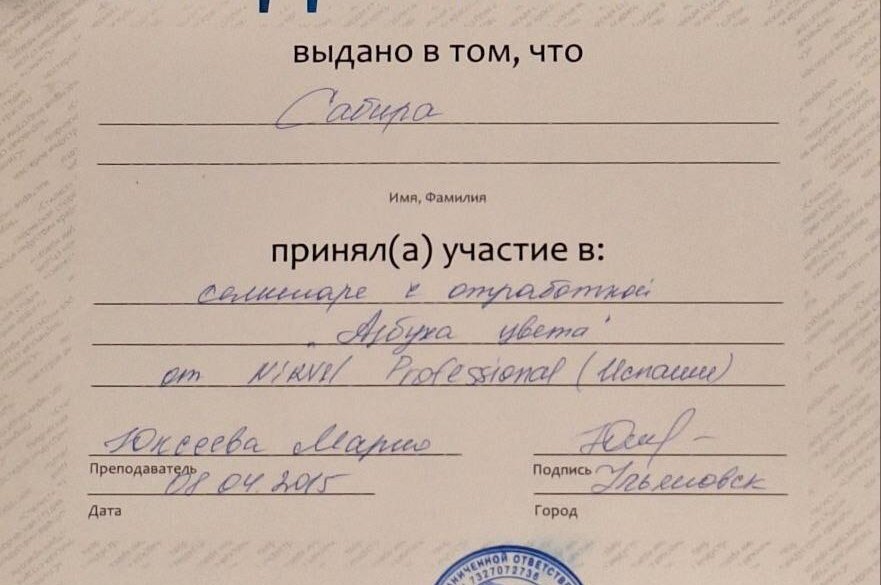 выдано в том, что
Сабира
Имя, Фамилия
принял(а) участие в:
семинаре с отработкой
"Азбука цвета"
от Nirvel Professional (Испания)
Юксеева Мария
Преподаватель
Подпись
08.04.2015
Ульяновск
Дата
Город
ОТВЕТСТВЕ
7327072736